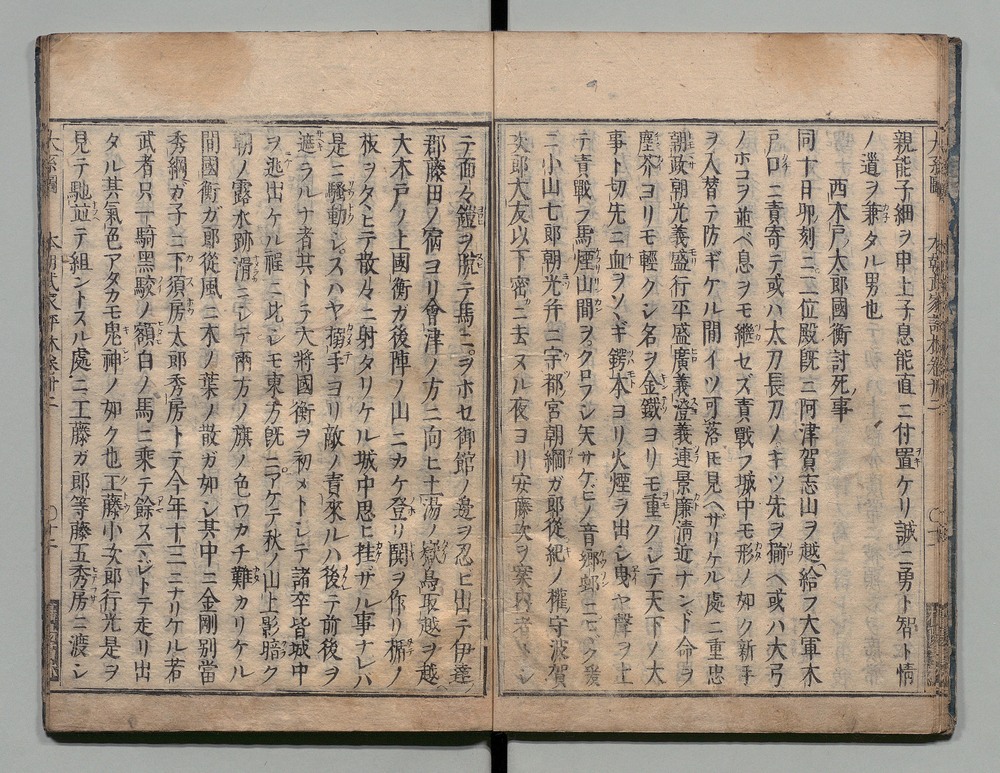 親能子細ヲ申上子息能直ニ付置ケリ誠ニ勇ト智ト情
ノ道ヲ兼タル男也
西木戸太郎國衡討死ノ事
同十日卯刻ニ二位殿既ニ阿津賀志山ヲ越給フ大軍木
戸口ニ責寄テ或ハ太刀長刀ノキツ先ヲ揃ヘ或ハ大弓
ノホコヲ並ベ息ヲモ継セズ責戰フ城中モ形ノ如ク新手
ヲ入替テ防ギケル間イツ可落トモ見ヘザリケル處ニ重忠
朝政朝光義盛行平盛廣義澄義連景廉清近ナンド命ヲ
塵芥ヨリモ輕クシ名ヲ金鐵ヨリモ重クシテ天下ノ大
事ト切先ニ血ヲソヽギ鍔本ヨリ火煙ヲ出シ曳ヤ聲ヲ上
テ責戰フ馬煙山間ヲクロフシ矢サケビノ音郷郡ニヒヾク爰
ニ小山七郎朝光幷ニ宇都宮朝綱ガ郎從紀ノ權守波賀
次郎大友以下密ニ去ヌル夜ヨリ安藤次ヲ案内者トシ
テ面々鎧ヲ脱テ馬ニヲホセ御館ノ邊ヲ忍ヒ出テ伊達
郡藤田ノ宿ヨリ會津ノ方ニ向ヒ土湯ノ嶽鳥取越ヲ越
大木戸ノ上國衡ガ後陣ノ山ニカケ登リ鬨ヲ作リ楯ノ
板ヲタヽヒテ散々ニ射タリケル城中思ヒ挂サル事ナレバ
是ニ騒動シスハヤ搦手ヨリ敵ノ責來ルハ後テ前後ヲ
遮ラルナ者共トテ大將國衡ヲ初メトシテ諸卒皆城中
ヲ逃出ケル程ニ比シモ東方既ニアケテ秋ノ山上影暗ク
朝ノ露水跡滑ニシテ兩方ノ旗ノ色ワカチ難カリケル
間國衡ガ郎從風ニ木ノ葉ノ散ガ如シ其中ニ金剛別當
秀綱ガ子ニ下須房太郎秀房トテ今年十三ニナリケル若
武者只一騎黑駮ノ額白ノ馬ニ乘テ餘スマシトテ走リ出
タル其氣色アタカモ鬼神ノ如ク也工藤小次郎行光是ヲ
見テ馳並テ組ントスル處ニ工藤ガ郎等藤五秀房ニ渡シ